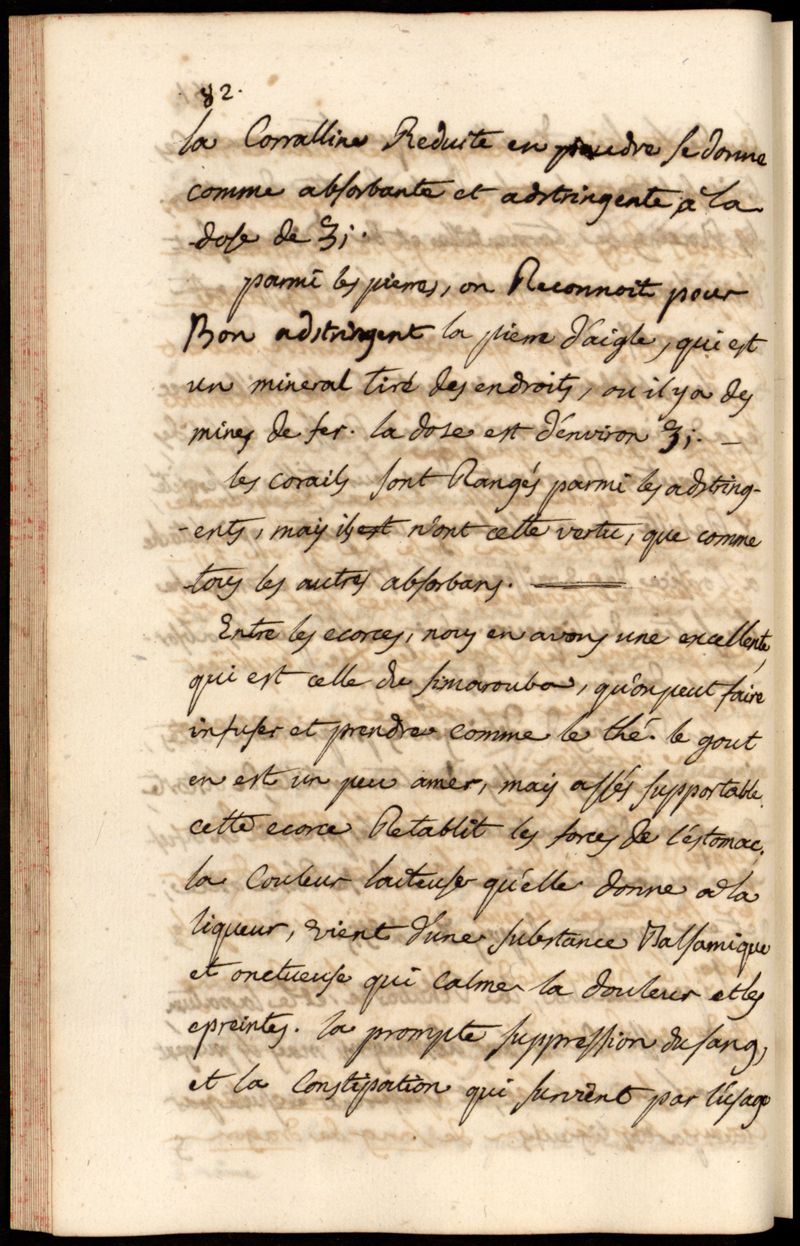 82.
la Corralline Reduite en poudre se donne
comme absorbante et adstringente, à la
dose de ʒj.
parmi les pierres, on Reconnoit pour
Bon adstringent la pierre d'aigle, qui est
un mineral tiré des endroits, ou il y a des
mines de fer. la dose est d'énviron ʒj. —
les corails sont Rangés parmi les adstring-
-ents, mais ils est n'ont cette vertu, que comme
tous les autres absorbans. ——
Entre les ecorces, nous en avons une excellente,
qui est celle du simarouba, qu'on peut faire
infuser et prendre comme le thé. le gout
en est un peu amer, mais assés supportable.
cette ecorce Retablit les forces de l'éstomac.
la Couleur laiteuse qu'elle donne a la
liqueur, vient d'une substance Balsamique
et onctueuse qui Calme la douleur et les
epreintes. la prompte suppression du sang,
et la Constipation qui survient par l'úsage